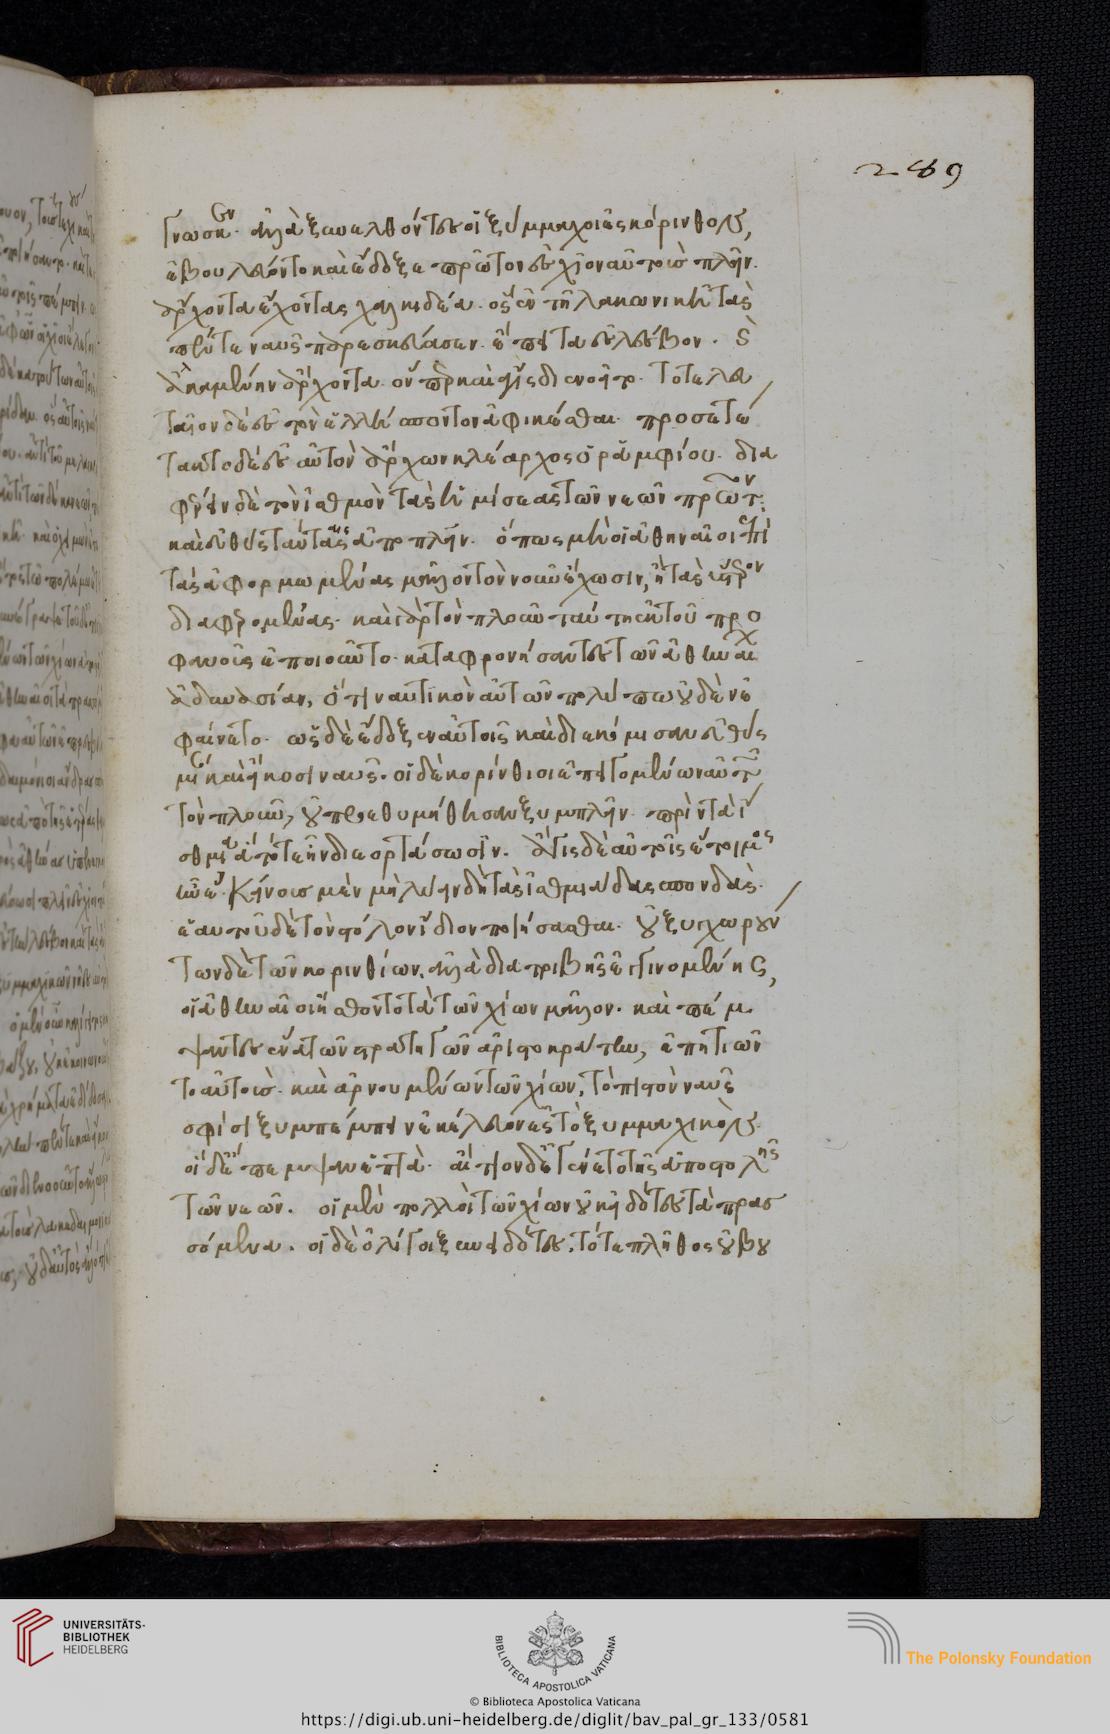 γνωσιν. ἀλλὰ ξυνελθόντες οἱ ξύμμαχοι ἐς κόρινθον,
ἐβουλεύοντο καὶ ἔδοξε πρῶτον ἐς χῖον αὐτοῖς πλεῖν.
ἄρχοντα ἔχοντας χαλκιδέα. ὃς ἐν τῆ λακωνικῆ τὰς
πέντε ναῦς παρεσκεύασεν. ἔπειτα ἐς λέσβον. καὶ
ἀλκαμένην ἄρχοντα. ὅνπερ καὶ ἆγις διενοεῖτο. τὸ τελευ
ταῖον δὲ ἐς τὸν ἑλλήσποντον ἀφικέσθαι. προσετέ
τακτο δὲ ἐς αὐτὸν ἄρχων κλέαρχος ὁ ῥαμφίου. δια
φέρειν δὲ τὸν ἰσθμὸν τὰς ἡμίσεας τῶν νεῶν πρῶτον.
καὶ εὐθὺς ταύτας ἀποπλεῖν. ὅπως μὴ οἱ ἀθηναῖοι πρὸς
τὰς ἀφορμωμένας μᾶλλον τὸν νοῦν ἔχωσιν, ἢ τὰς ὕστερον
διαφερομένας. καὶ γὰρ τὸν πλοῦν ταύτη ἐκ τοῦ προ
φανοῦς ἐποιοῦντο. καταφρονήσαντες τῶν ἀθηναίων
ἀδυνασίαν, ὅτι ναυτικὸν αὐτῶν πολύ πω οὐδὲν ἐ
φαίνετο. ὡς δὲ ἔδοξεν αὐτοῖς καὶ διεκόμισαν εὐθὺς
μίαν καὶ εἴκοσι ναῦς. οἱ δὲ κορίνθιοι ἐπειγομένων αὐτῶν
τὸν πλοῦν, οὐ προεθυμήθησαν ξυμπλεῖν. πρὶν τὰ ἴ
σθμια ἃ τότε ἦν διεορτάσωσιν. ἆγις δὲ αὐτοῖς ἑτοῖμος
ἦν. ἐκείνοις μὲν μὴ λύειν δὴ τὰς ἰσθμιάδας σπονδάς.
ἑαυτοῦ δὲ τὸν στόλον ἴδιον ποιήσασθαι. οὐ ξυγχωρούν
των δὲ τῶν κορινθίων. ἀλλὰ διατριβῆς ἐγγινομένης,
οἱ ἀθηναῖοι ἤσθοντο τὰ τῶν χίων μᾶλλον. καὶ πέμ
ψαντες ἕνα τῶν στρατηγῶν ἀριστοκράτην, ἐπητιῶν
το αὐτοὺς. καὶ ἀρνουμένων τῶν χίων, τὸ πιστὸν ναῦς
σφίσι ξυμπέμπειν ἐκέλευον ἐς τὸ ξυμμαχικὸν.
οἱ δ' ἔπεμψαν ἑπτὰ. αἴτιον δ' ἐγένετο τῆς ἀποστολῆς
τῶν νεῶν. οἱ μὲν πολλοὶ τῶν χίων οὐκ εἰδότες τὰ πρασ
σόμενα. οἱ δὲ ὀλίγοι ξυνειδότες. τό τε πλῆθος οὐ βου
289
UNIVERSITÄTS-
BIBLIOTHEK
HEIDELBERG
BIBLIOTECA APOSTOLICA VATICANA
The Polonsky Foundation
© Biblioteca Apostolica Vaticana
https://digi.ub.uni-heidelberg.de/diglit/bav_pal_gr_133/0581